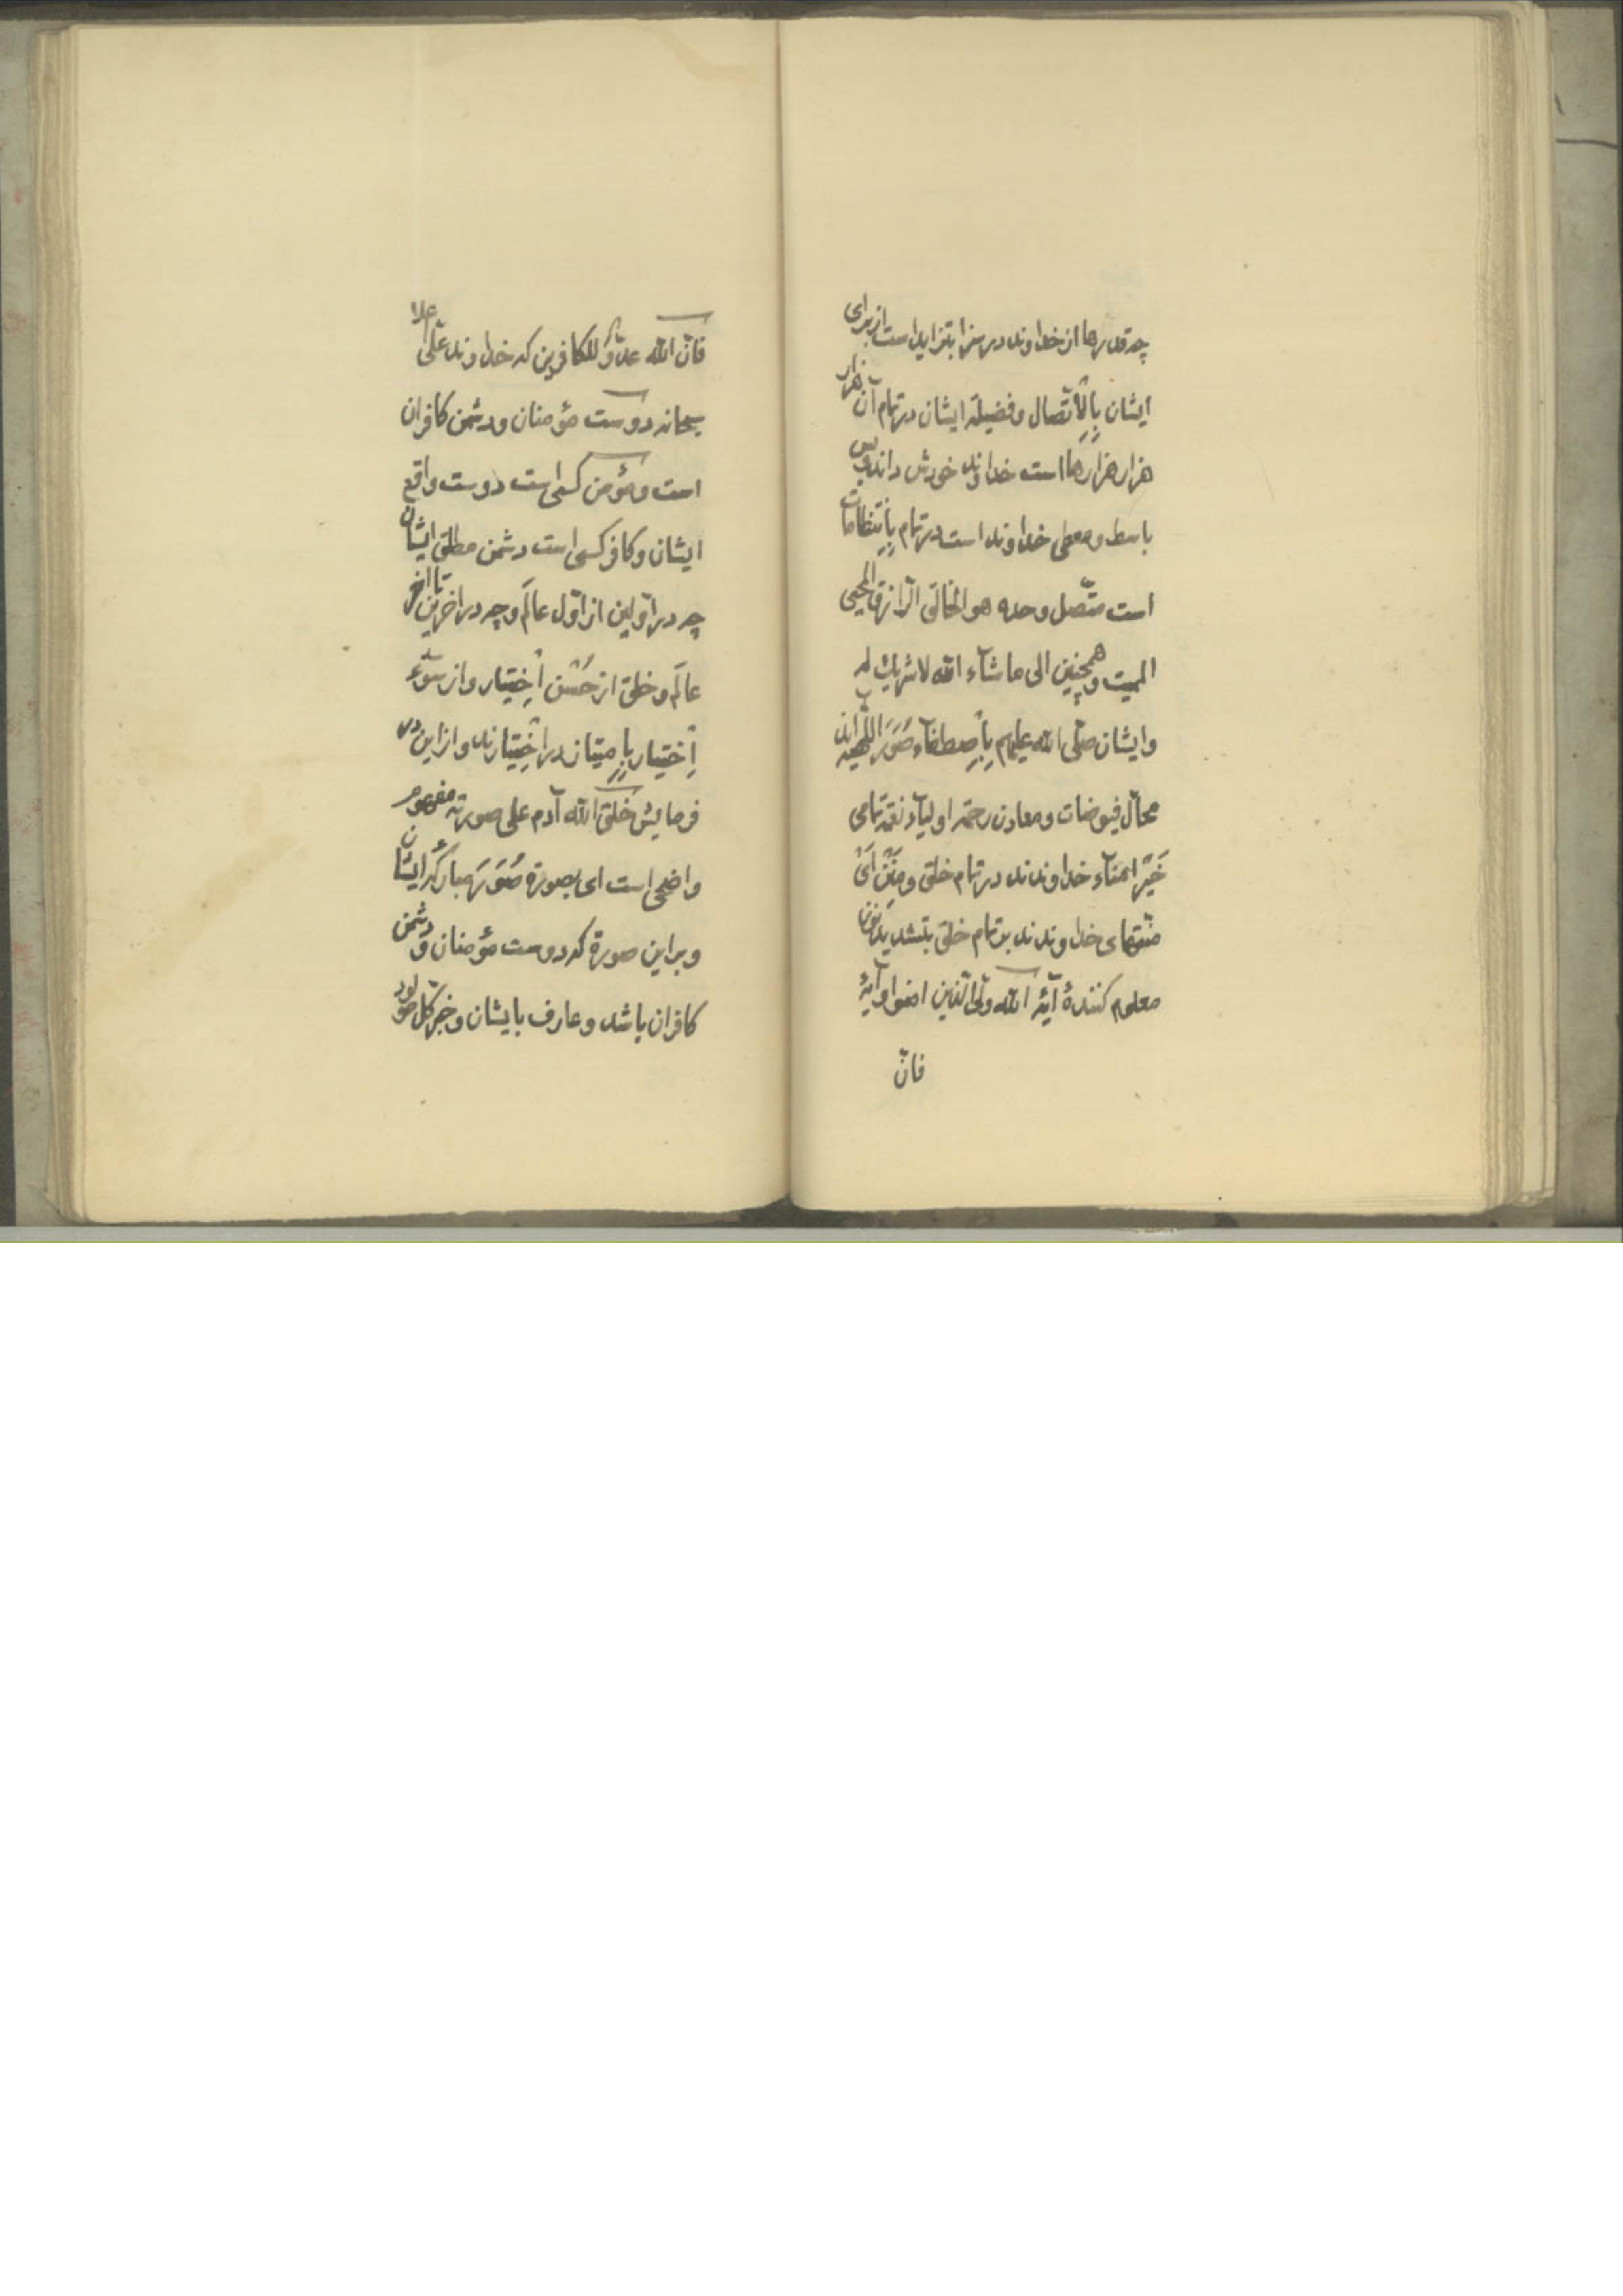 چه قدرها از خداوند در سزا بتزاید است از برای
ایشان بِالْاِتّصال و فضیلة ایشان در تمام آن هزار
هزار هزارها است خداوند خودش داند و بس
باسط و معطی خداوند است در تمام بِاِنتظامات
است متّصل وحده هو الخالق الرّازق المحیی
الممیت و همچنین الی ما شآء الله لا شریك له
و ایشان صلّی الله علیهم بِاِصطفآء صُوَر
محالّ فیوضات و معادن رحمة اولیآء نقمة تمامی
خَیْر امنآء خداوندند در تمام خلق و مِنَنْ اَیْ
منّتهای خداوندند بر تمام خلق بتشدید نون
معلوم کنندهٔ آیهٔ الله ولیّ الّذین امنوا و آیهٔ
فانّ
فانّ الله عدوٌّ للکافرین که خداوند علیّ علا
سبحانه دوست مؤمنان و دشمن کافران
است و مؤمن کسی است دوست واقع
ایشان و کافر کسی است دشمن مطلق ایشان
چه در اوّلین از اوّل عالَم و چه در اخرین تا اخر
عالَم و خلق از حُسْن اِختیار و از سوٓء
اِختیار بِامتیاز در اِختیارند و از این در
فرمایش خلق الله آدم علی صورته مفهوم
واضحی است ای بصورة صُوَرِ مبارکهٔ ایشان
و بر این صورة که دوست مؤمنان و دشمن
کافران باشد و عارف بایشان و خیر کلّ مولود